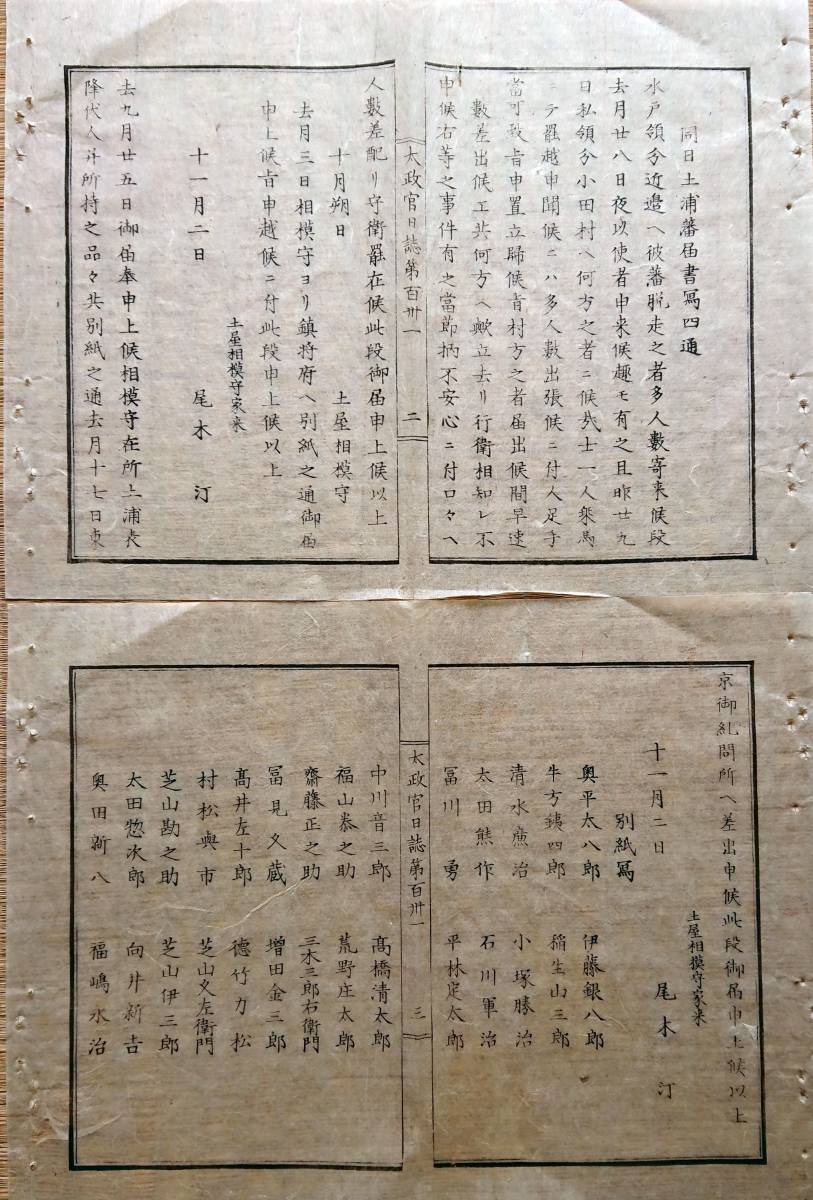 同日土浦藩届書寫四通
水戸領分近邉ヘ彼藩脱走之者多人數寄来候段
去月廿八日夜以使者申来候趣モ有之且昨廿九
日私領分小田村ヘ何方之者ニ候哉士一人乗馬
ニテ罷越申聞候ニハ多人數出張候ニ付人足手
當可致旨申置立歸候旨村方之者届出候間早速
數差出候エ共何方ヘ歟立去リ行衛相知レ不
申候右等之事件有之當節柄不安心ニ付口々ヘ
太政官日誌第百卅一
二
人數差配リ守衛罷在候此段御届申上候以上
十月朔日
土屋相模守
去月三日相模守ヨリ鎮将府ヘ別紙之通御届
申上候旨申越候ニ付此段申上候以上
土屋相模守家来
十一月二日
尾木 汀
去九月廿五日御届奉申上候相模守在所土浦表
降代人并所持之品々共別紙之通去月十七日東
京御糺問所ヘ差出申候此段御届申上候以上
土屋相摸守家来
十一月二日
尾木 汀
別紙寫
奥平太八郎 伊藤銀八郎
牛方銕四郎 稲生山三郎
清水𢈘治 小塚勝治
太田熊作 石川軍治
冨川勇 平林定太郎
太政官日誌第百卅一
三
中川音三郎 髙橋清太郎
福山恭之助 荒野庄太郎
齋藤正之助 三木三郎右衛門
冨見又蔵 増田金三郎
髙井左十郎 徳竹力松
村松與市 芝山又左衛門
芝山勘之助 芝山伊三郎
太田惣次郎 向井新吉
奥田新八 福嶋永治